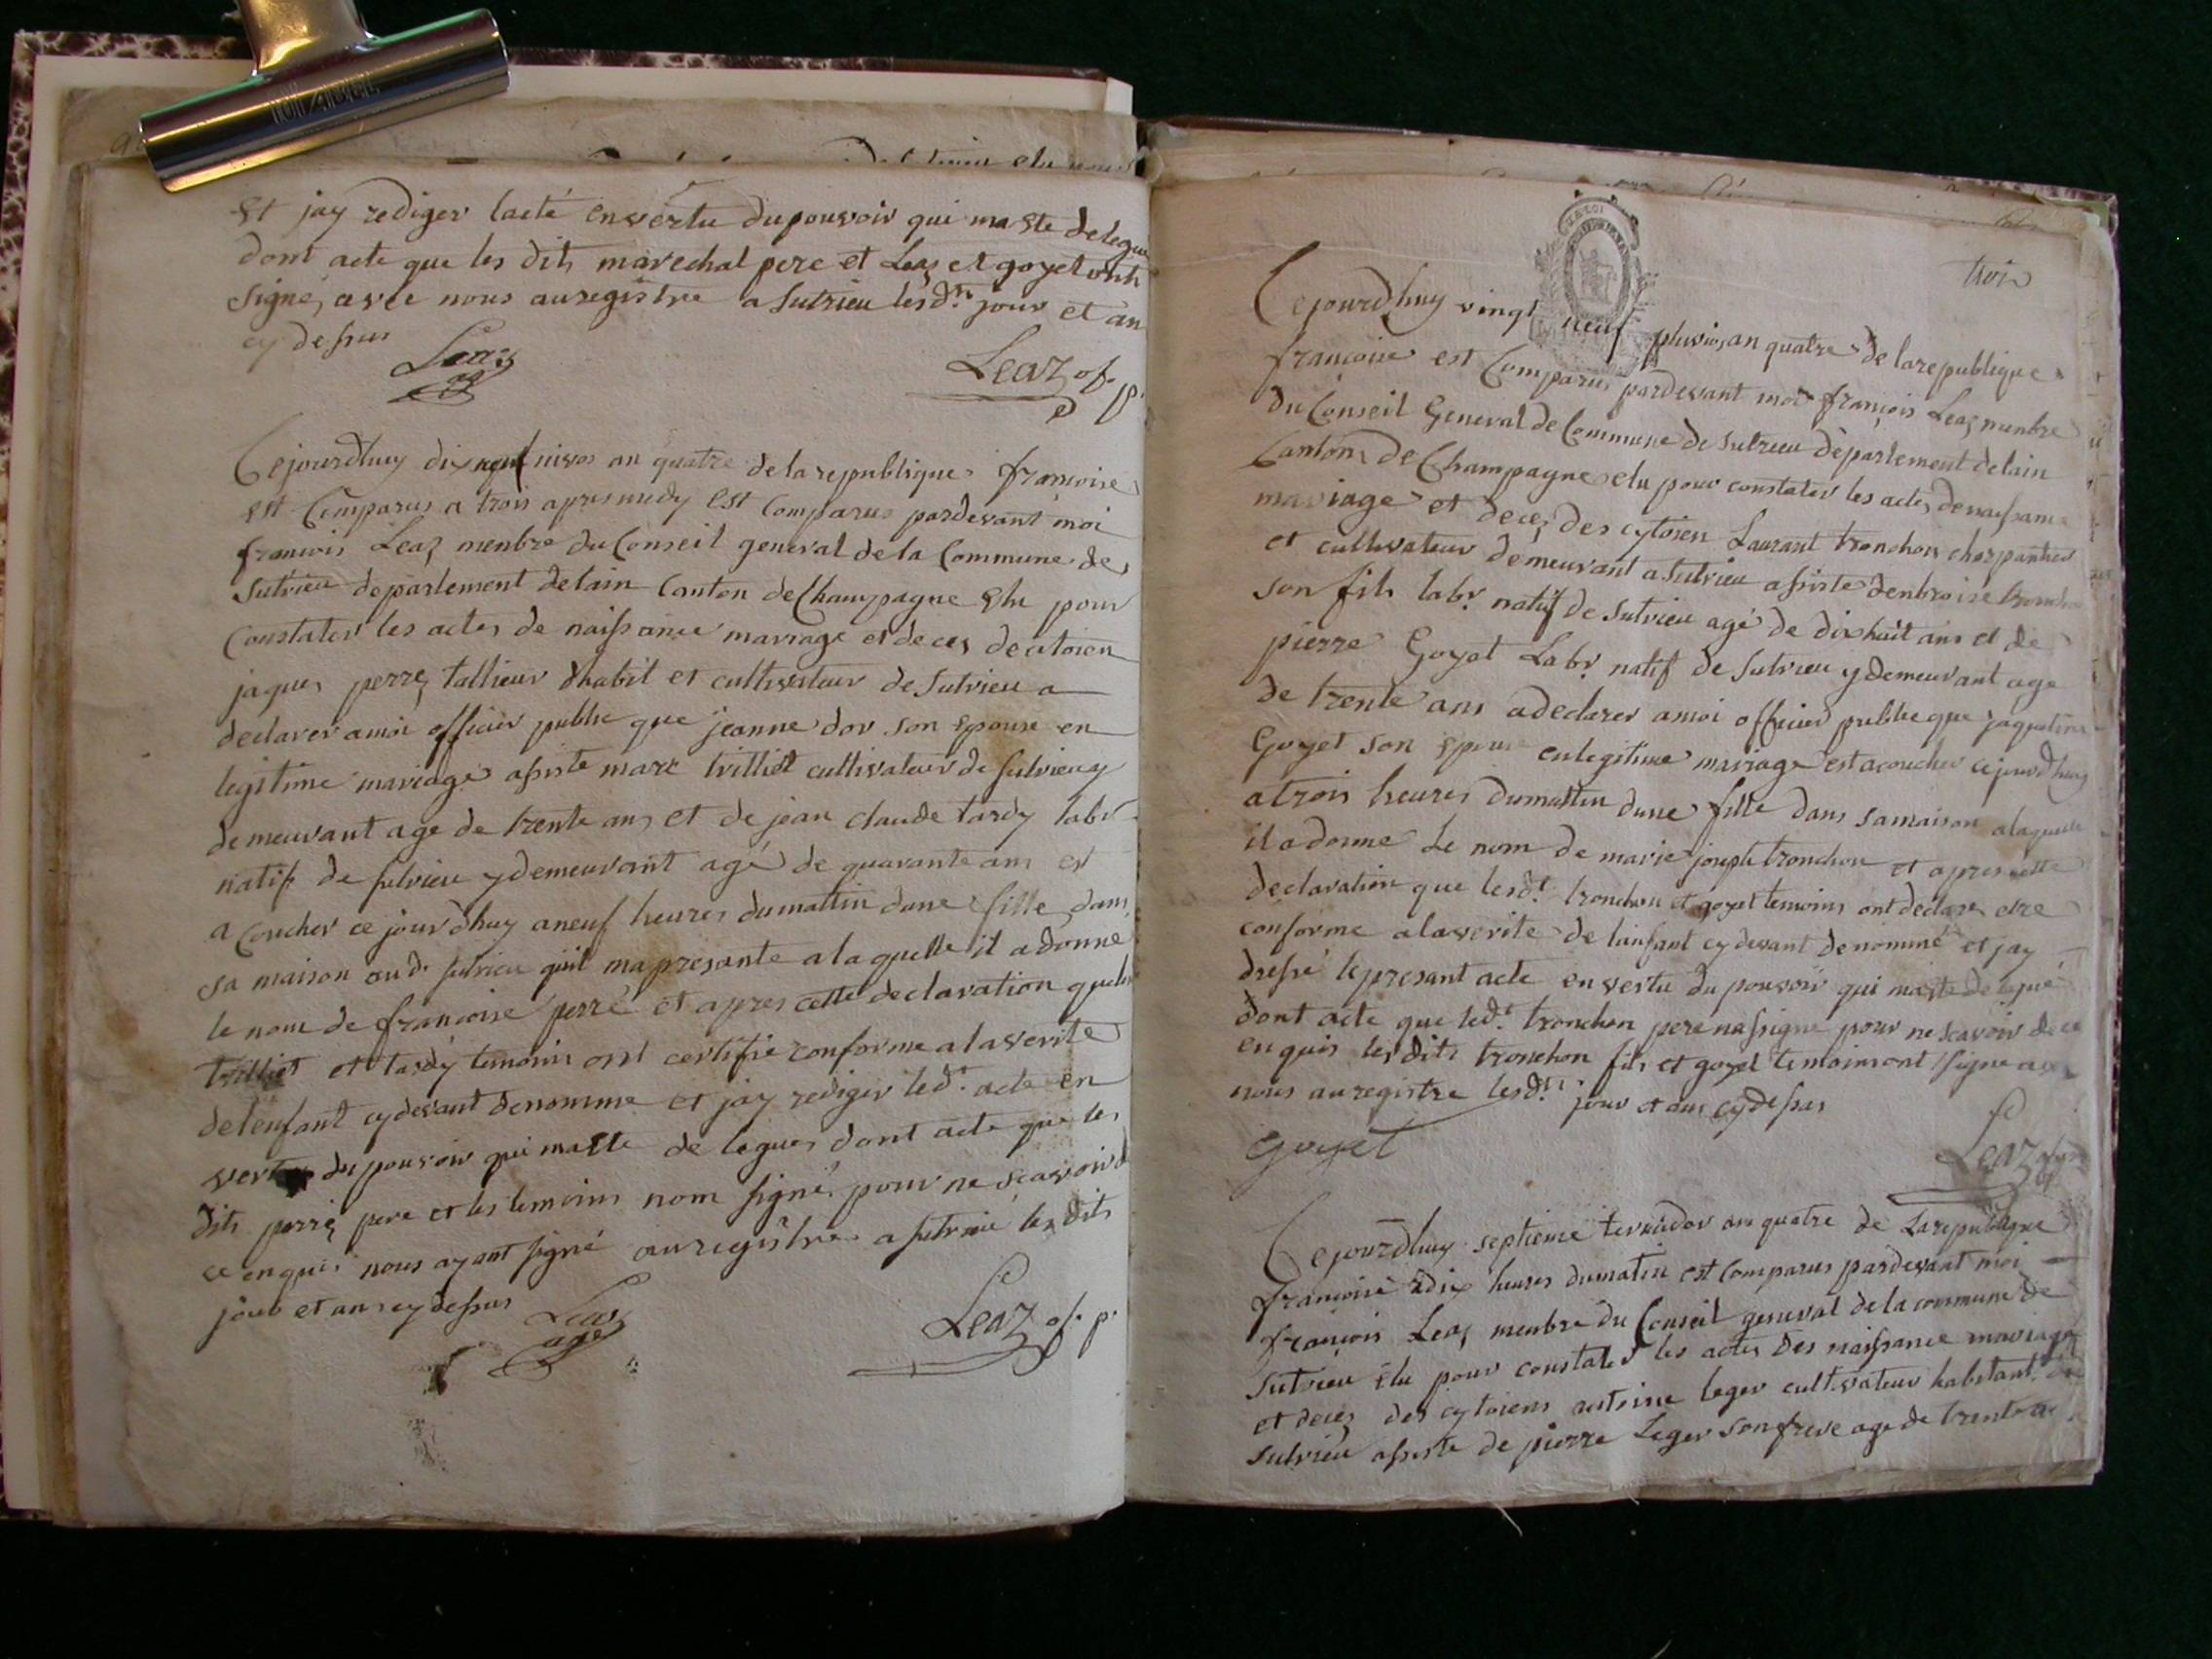 et jay rediger lacte en vertu du pouvoir qui ma ete delegue
dont acte que les dits marechal pere et Leaz et goyet onts
signé, avec nous au registre a Sutrieu lesd.ts jour et an
cy dessus
Leaz
Leaz of. p.
Cejourdhuy dix neuf nivos an quatre de la republique francoise
est Comparus a trois apres midy est comparus pardevant moi
francois Leaz menbre du Conseil general de la Commune de
Sutrieu departement delain Canton de Champagne Elu pour
Constater les actes de naissance mariage et deces de citoien
jaques perre, tallieur dhabit et cultivateur de Sutrieu a
declarer a moi officier public que jeanne dor son epouse en
legitime mariage asisté marc trilliet cultivateur de Sutrieu y
demeurant age de trente ans et de jean claude tardy labr
natif de sutrieu y demeurant agé de quarante ans est
acoucher ce jourdhuy a neuf heures du mattin dune fille dans
sa maison aud. sutrieu quil ma presanté a laquelle il a donné
le nom de francoise perré et apres cette declaration que les
trilliet et tardy temoins ont certifié conforme a la verite
de lenfant cy devant denommé et jay rediger led.t acte en
vertu du pouvoir qui ma ete de legues dont acte que les
dits perré pere et les temoins nom signé pour ne scavoir de
ce enquis nous ayant signé au registre a sutrieu les dits
jour et an cy dessus
Leaz
Leaz of. p.
trois
Cejourdhuy vingt neuf pluvios an quatre de la republique
francoise est Comparus pardevant moi françois Leaz menbre
du Conseil General de Commune de Sutrieu departement delain
Canton de Champagne elu pour constater les actes de naissance
mariage et deces des cytoien Laurant tronchon charpantier
et cultivateur demeurant a Sutrieu asisté denbroise tronchon
son fils labr. natif de Sutrieu agé de dix huit ans et de
pierre Goyet Labr. natif de Sutrieu y demeurant age
de trente ans a declarer a moi officier public que jaqueline
Goyet son epouse en legitime mariage est acoucher cejourdhuy
a trois heures du mattin dune fille dans sa maison a laquelle
il a donné le nom de marie joseph tronchon et apres cette
declaration que lesd.t tronchon et goyet temoins ont declare etre
conforme a la verite de lanfant cy devant denommé et jay
dressé le presant acte en vertu du pouvoir qui ma ete delegué
dont acte que led.t tronchon pere na signe pour ne scavoir de ce
enquis les dits tronchon fils et goyet temoins ont signe avec
nous au registre lesd.ts jour et an cy dessus
goyet
Leaz
Cejourdhuy septieme termidor an quatre de la republique
francoise a dix heures du matin est comparus pardevant moi
francois Leaz menbre du Conseil general de la commune de
Sutrieu elu pour constater les actes des naissance mariage
et deces des cytoiens antoine leger cultivateur habitant de
Sutrieu asisté de pierre Leger son frere age de trente a